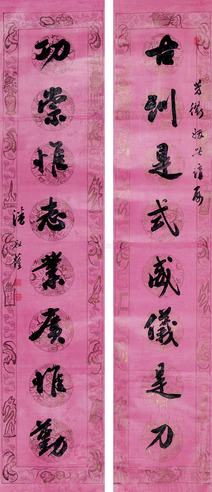 古訓是式威儀是力
功崇惟志業廣惟勤